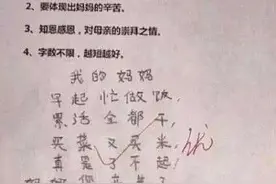 2、要体现出妈妈的辛苦。
3、知恩感恩，对母亲的崇拜之情。
4、字数不限，越短越好。
我的妈妈
早起忙做饭，
累活全都干，
买菜又买米，
真是了不起！
妈妈你辛苦了
优